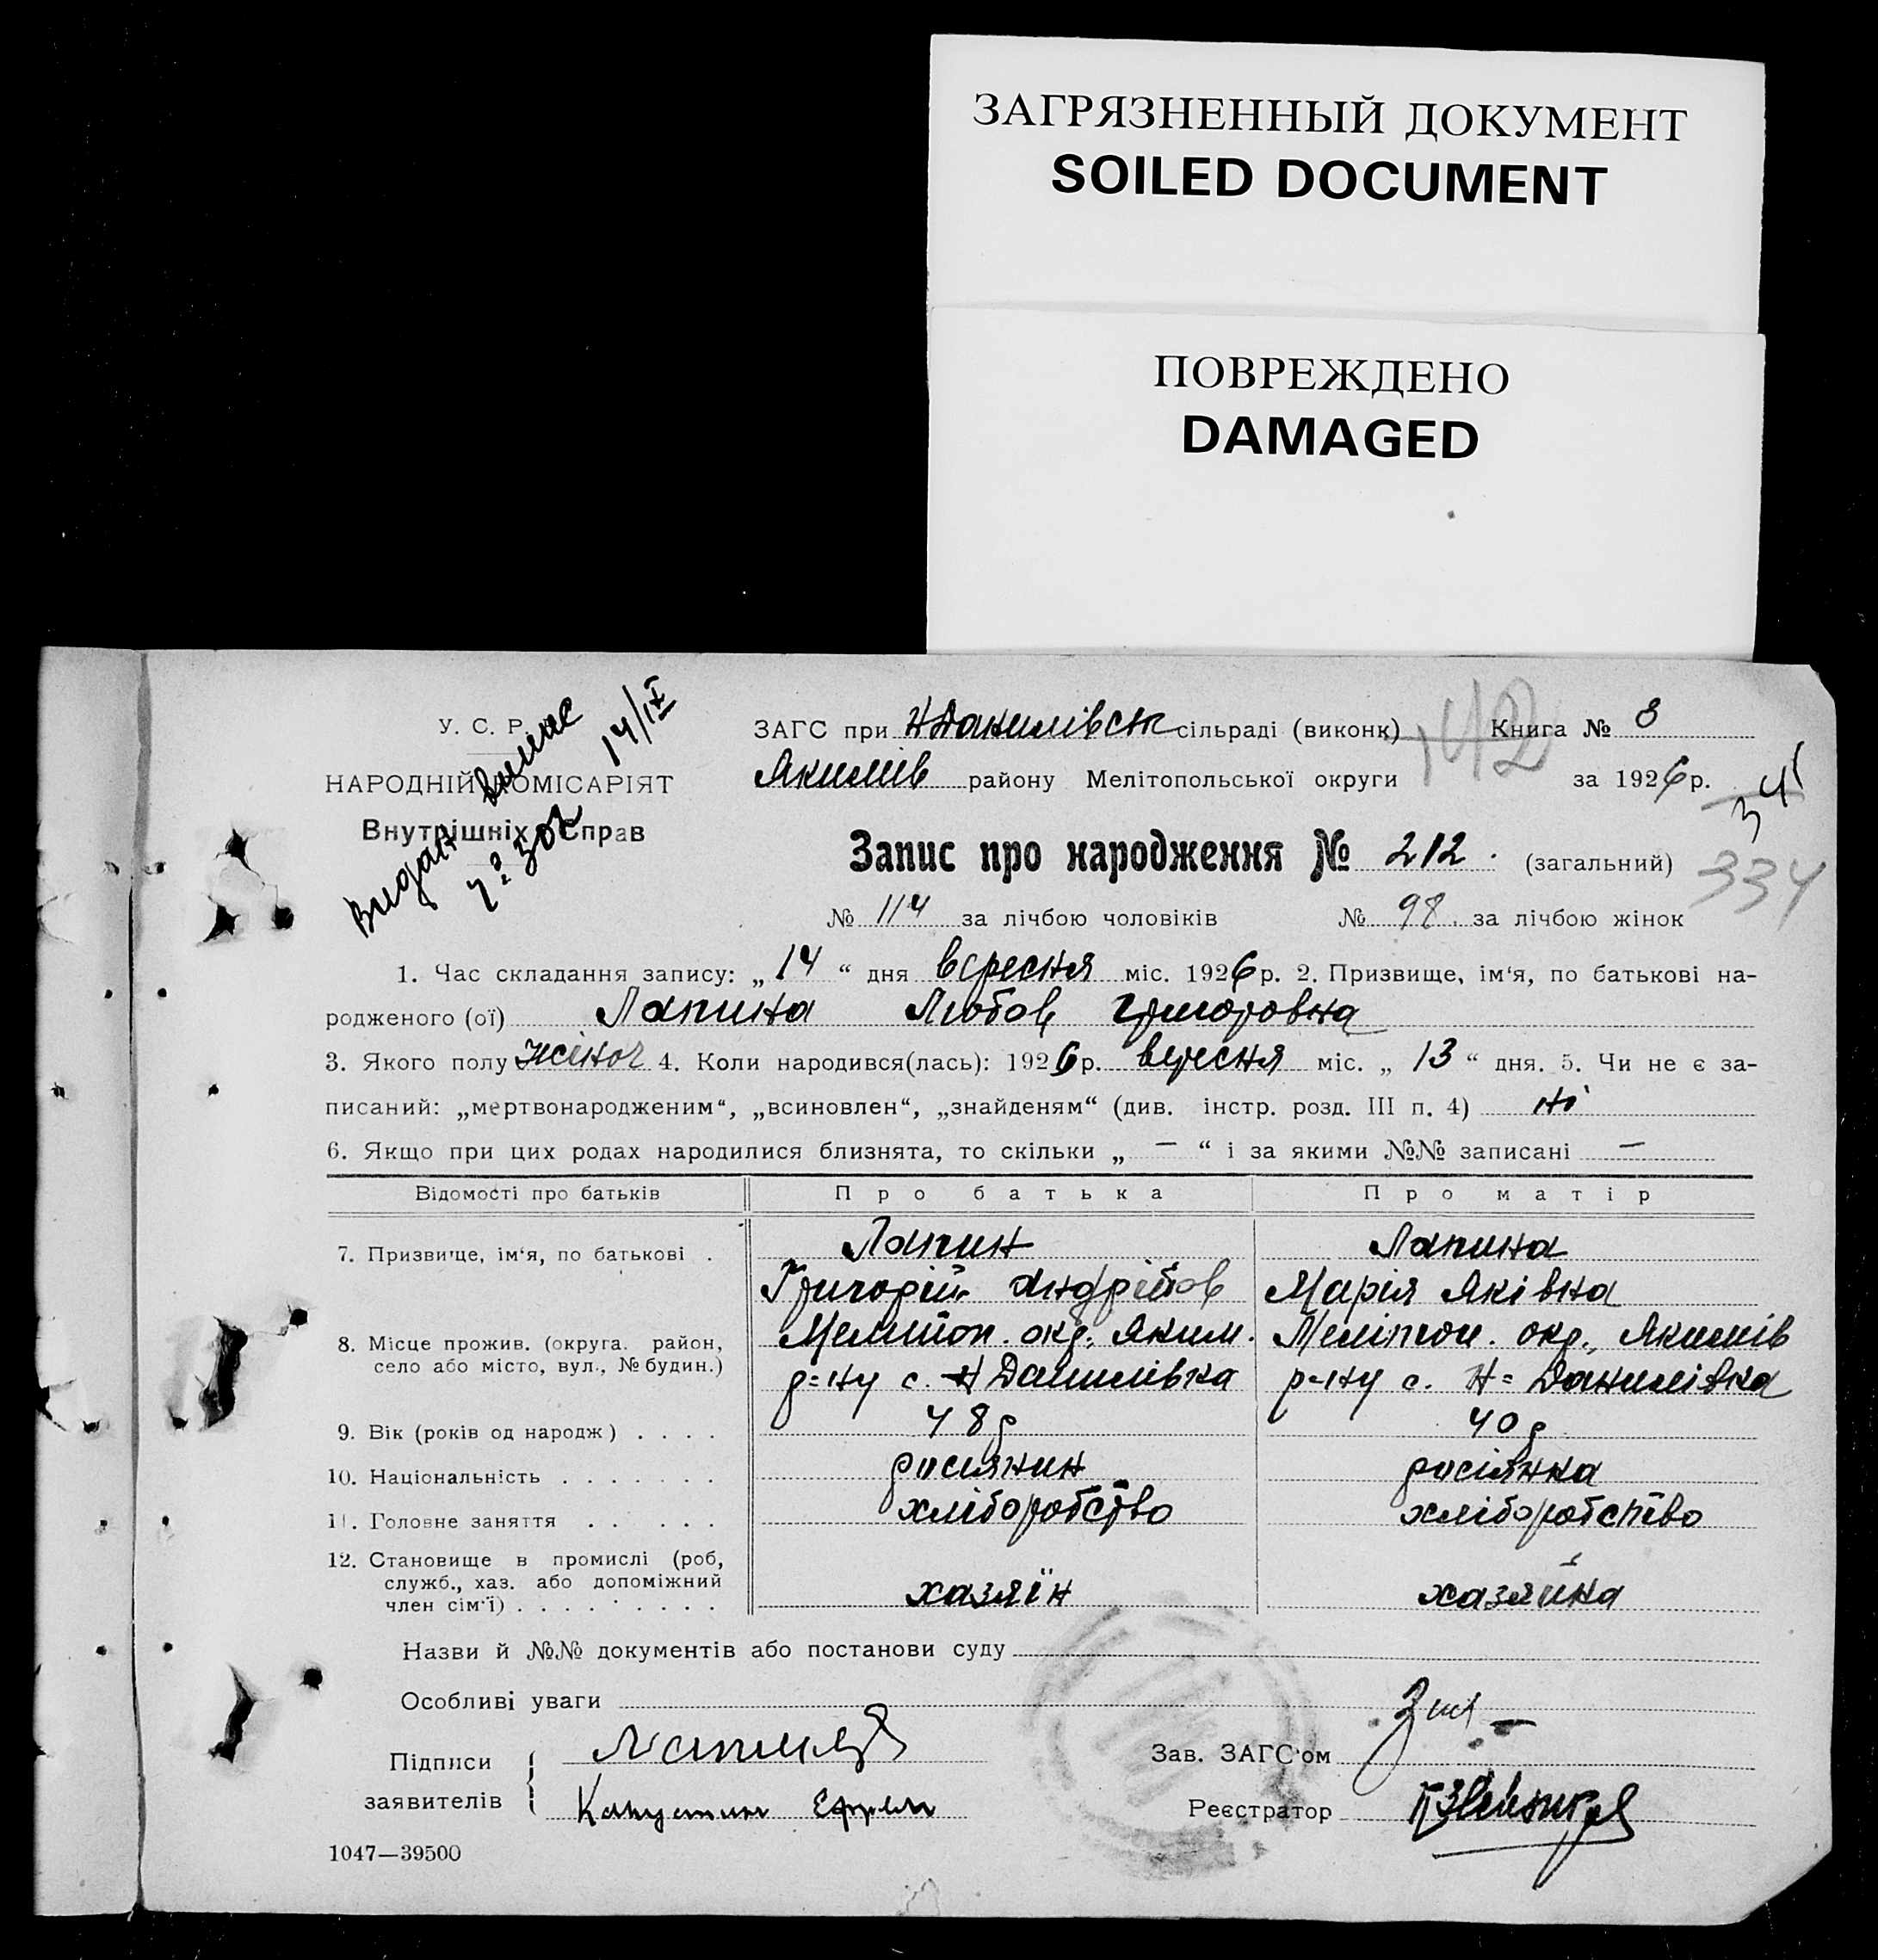 ЗАГРЯЗНЕННЫЙ ДОКУМЕНТ
SOILED DOCUMENT
ПОВРЕЖДЕНО
DAMAGED
У. С. Р. Р.
НАРОДНІЙ КОМІСАРІЯТ
Внутрішніх Справ
Видан випис 14/IX
ЗАГС при Н Данилівськ сільраді (виконк) 142 Книга № 3
Якимів району Мелітопольської округи за 1926 р.
341
Запис про народження № 212. (загальний)
334
№ 114 за лічбою чоловіків № 98. за лічбою жінок
1. Час складання запису: „14“ дня вересня міс. 1926 р. 2. Призвище, ім‘я, по батькові на-
родженого (ої) Лапина Любов Григоровна
3. Якого полу жіноч 4. Коли народився(лась): 1926 р. вересня міс. „13“ дня. 5. Чи не є за-
писаний: „мертвонародженим“, „всиновлен“, „знайденям“ (див. інстр. розд. III п. 4) ні
6. Якщо при цих родах народилися близнята, то скільки „ — “ і за якими №№ записані —
Відомості про батьків Про батька Про матір
7. Призвище, ім‘я, по батькові . Лапин Лапина
Григорій Андріїов Марія Яківна
8. Місце прожив. (округа. район, Мелітоп. окр., Яким. Мелітоп. окр., Якимів
село або місто, вул., № будин.) р=ну с. Н Данилівка р=ну с. Н= Данилівка
9. Вік (років од народж) . . . . 48 р 40 р
10. Національність . . . . . . . росіянин росіянка
11. Головне заняття . . . . . . хліборобство хліборобство
12. Становище в промислі (роб,
служб., хаз. або допоміжний
член сім‘ї) . . . . . . . . . хазяїн хазяйка
Назви й №№ документів або постанови суду
Особливі уваги
Підписи
заявителів
Капустин Ефрем
Зав. ЗАГС‘ом
Реєстратор
1047—39500